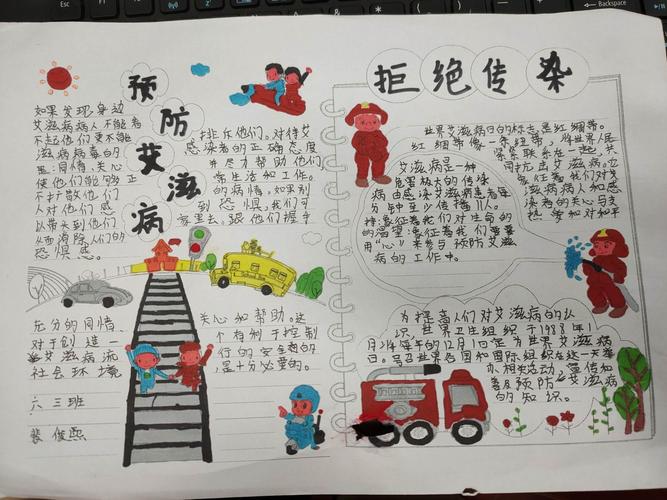 预防艾滋病
如果发现身边
艾滋病病人不能看
不起他们更不能
滋病病毒的
里:同情、关心
使他们能够正
不打散他们
人对他们感
以带头到他们
从而消除人们的
恐惧感。
排斥他们。对待艾
感读者的正确态度
并尽力帮助他们
常生活和工作。
的病情,如果别
到恐惧,我们可
家里去,跟他们握手
充分的同情、
对于创造一
艾滋病流
社会环境
六三班
裴俊熙
关心和帮助。这
个有利于控制
行的安全的
是十分必要的。
拒绝传染
世界艾滋病日的标志是红绸带。
红绸带像一条纽带,将世界人
紧紧联系在一起,共
同抗击艾滋病。它
象征着我们对艾
滋病病人和感
染者的关心与支
持;
艾滋病是一种
危害极大的传染
病由感染艾滋病病毒每
分钟至少传播11人。
象征着我们对生命的
的渴望;象征着我们要
用“心”来参与预防艾滋
病的工作中。
为提高人们对艾滋病的认
识,世界卫生组织于1988年1
月少年每年的12月1日定为世界艾滋病
日。号召世界各国和国际组织在这一天举
办相关活动,宣传和
普及预防艾滋病
的知识。